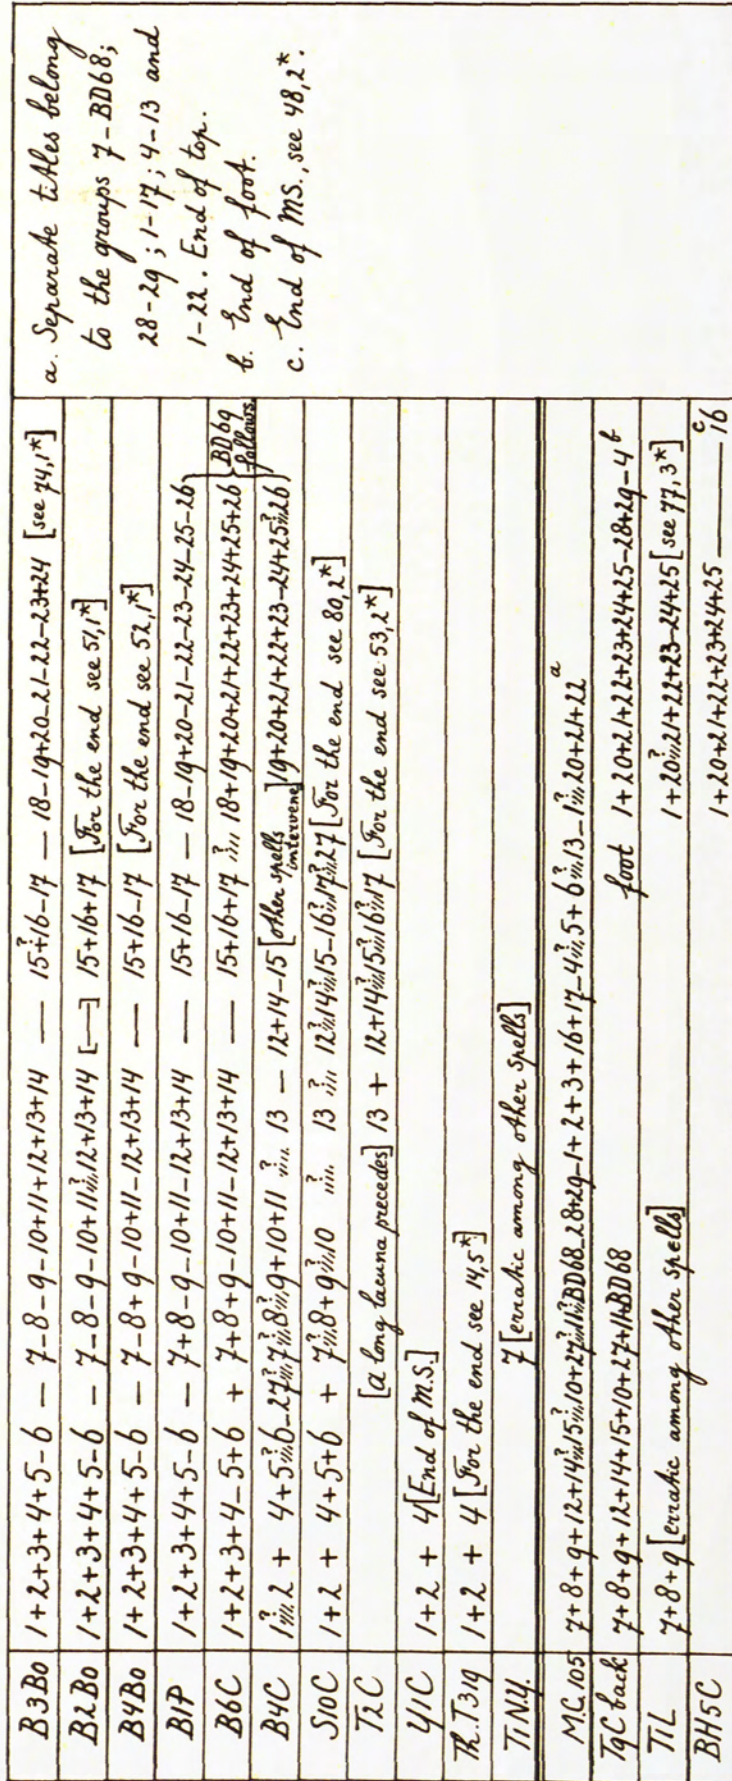 B3Bo 1+2+3+4+5-6 — 7-8-9-10+11+12+13+14 — 15?+16-17 — 18-19+20-21-22-23+24 [see 74,1*]
B2Bo 1+2+3+4+5-6 — 7-8-9-10+11?12+13+14 [—] 15+16+17 [For the end see 51,1*]
B4Bo 1+2+3+4+5-6 — 7-8+9-10+11-12+13+14 — 15+16-17 [For the end see 52,1*]
B1P 1+2+3+4+5-6 — 7+8-9-10+11-12+13+14 — 15+16-17 — 18-19+20-21-22-23-24-25-26
B6C 1+2+3+4-5+6 + 7+8+9-10+11-12+13+14 — 15+16+17 ? 18+19+20+21+22+23+24+25+26
BD69 follows
B4C 1?2 + 4+5?6-27?7?8?9+10+11 ? 13 – 12+14-15 [other spells intervene] 19+20+21+22+23-24+25?26
S10C 1+2 + 4+5+6 + 7?8+9?10 ? 13 ? 12?14?15-16?17?27 [For the end see 80,2*]
T2C [a long lacuna precedes] 13 + 12+14?15?16?17 [For the end see 53,2*]
Y1C 1+2 + 4 [End of M.S.]
Th.T319 1+2 + 4 [For the end see 14,5*]
T1N.Y. 7 [erratic among other spells]
M.C.105 7+8+9+12+14?15?10+27?11?BD68-28+29-1+2+3+16+17-4?5+6?13-1?20+21+22 a
T9C back 7+8+9+12+14+15+10+27+11+BD68 foot 1+20+21+22+23+24+25-28+29-4 b
T1L 7+8+9 [erratic among other spells] 1+20?21+22+23-24+25 [see 77,3*]
BH5C 1+20+21+22+23+24+25 — c 16
a. Separate titles belong
to the groups 7-BD68;
28-29; 1-17; 4-13 and
1-22. End of top.
b. End of foot.
c. End of MS., see 48,2*.